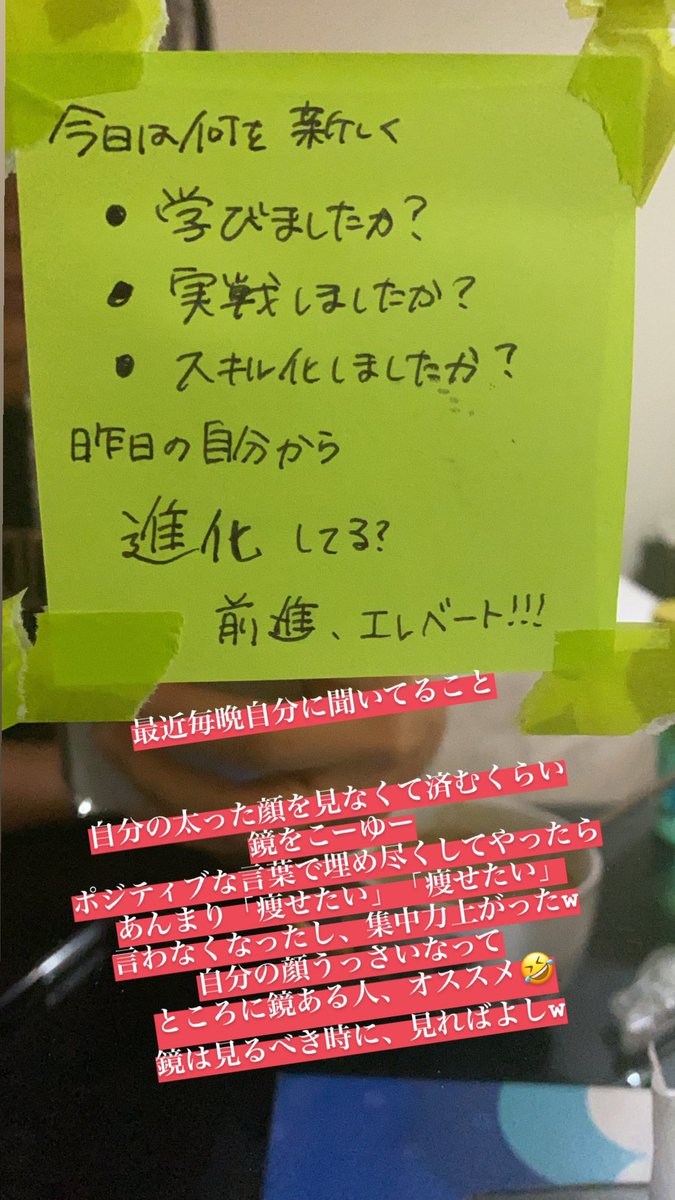 今日は何を 新しく
• 学びましたか?
• 実戦しましたか?
• スキル化しましたか?
昨日の自分から
進化してる?
前進、エレベート!!!
最近毎晩自分に聞いてること
自分の太った顔を見なくて済むくらい
鏡をこーゆー
ポジティブな言葉で埋め尽くしてやったら
あんまり「痩せたい」「痩せたい」
言わなくなったし、集中力上がったw
自分の顔うっさいなって
ところに鏡ある人、オススメ🤣
鏡は見るべき時に、見ればよしw